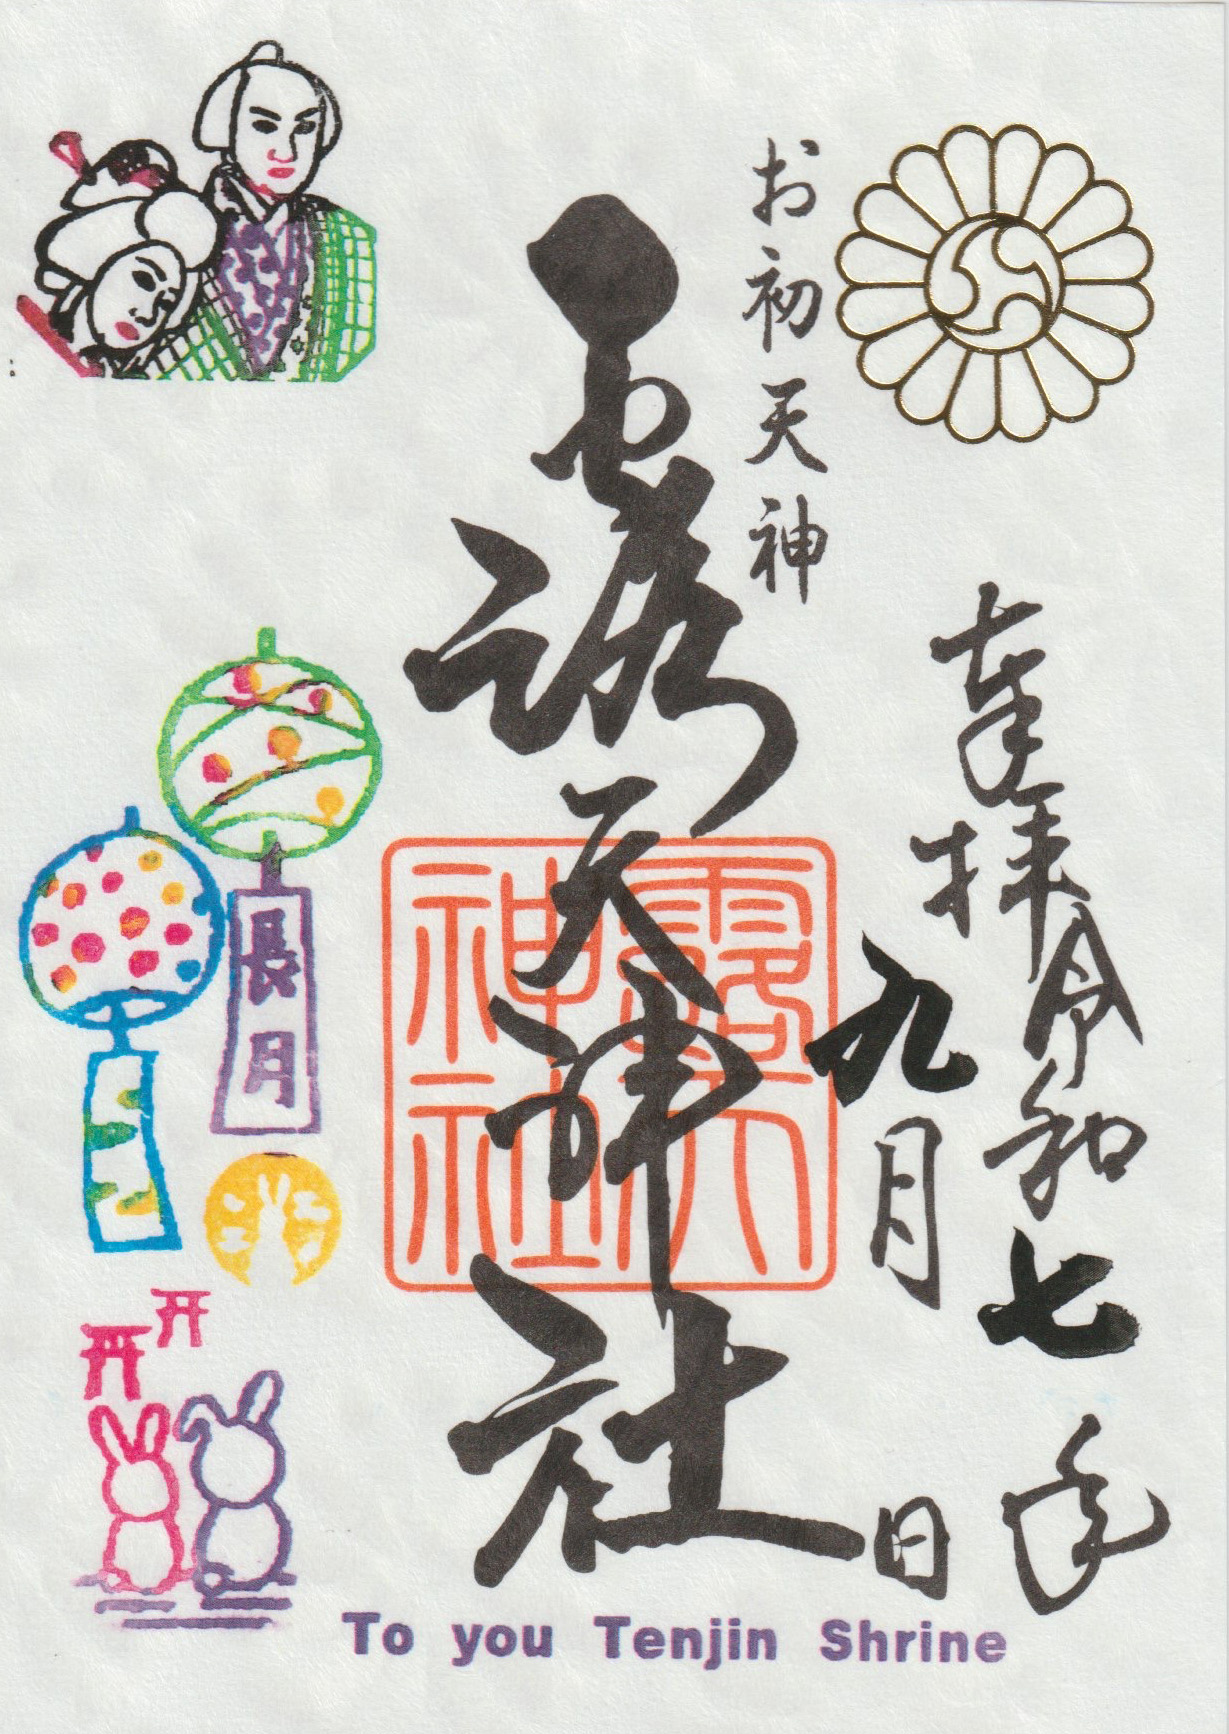 お初天神
奉拝 令和七年
九月 日
露天神社
露天神社
長月
To you Tenjin Shrine